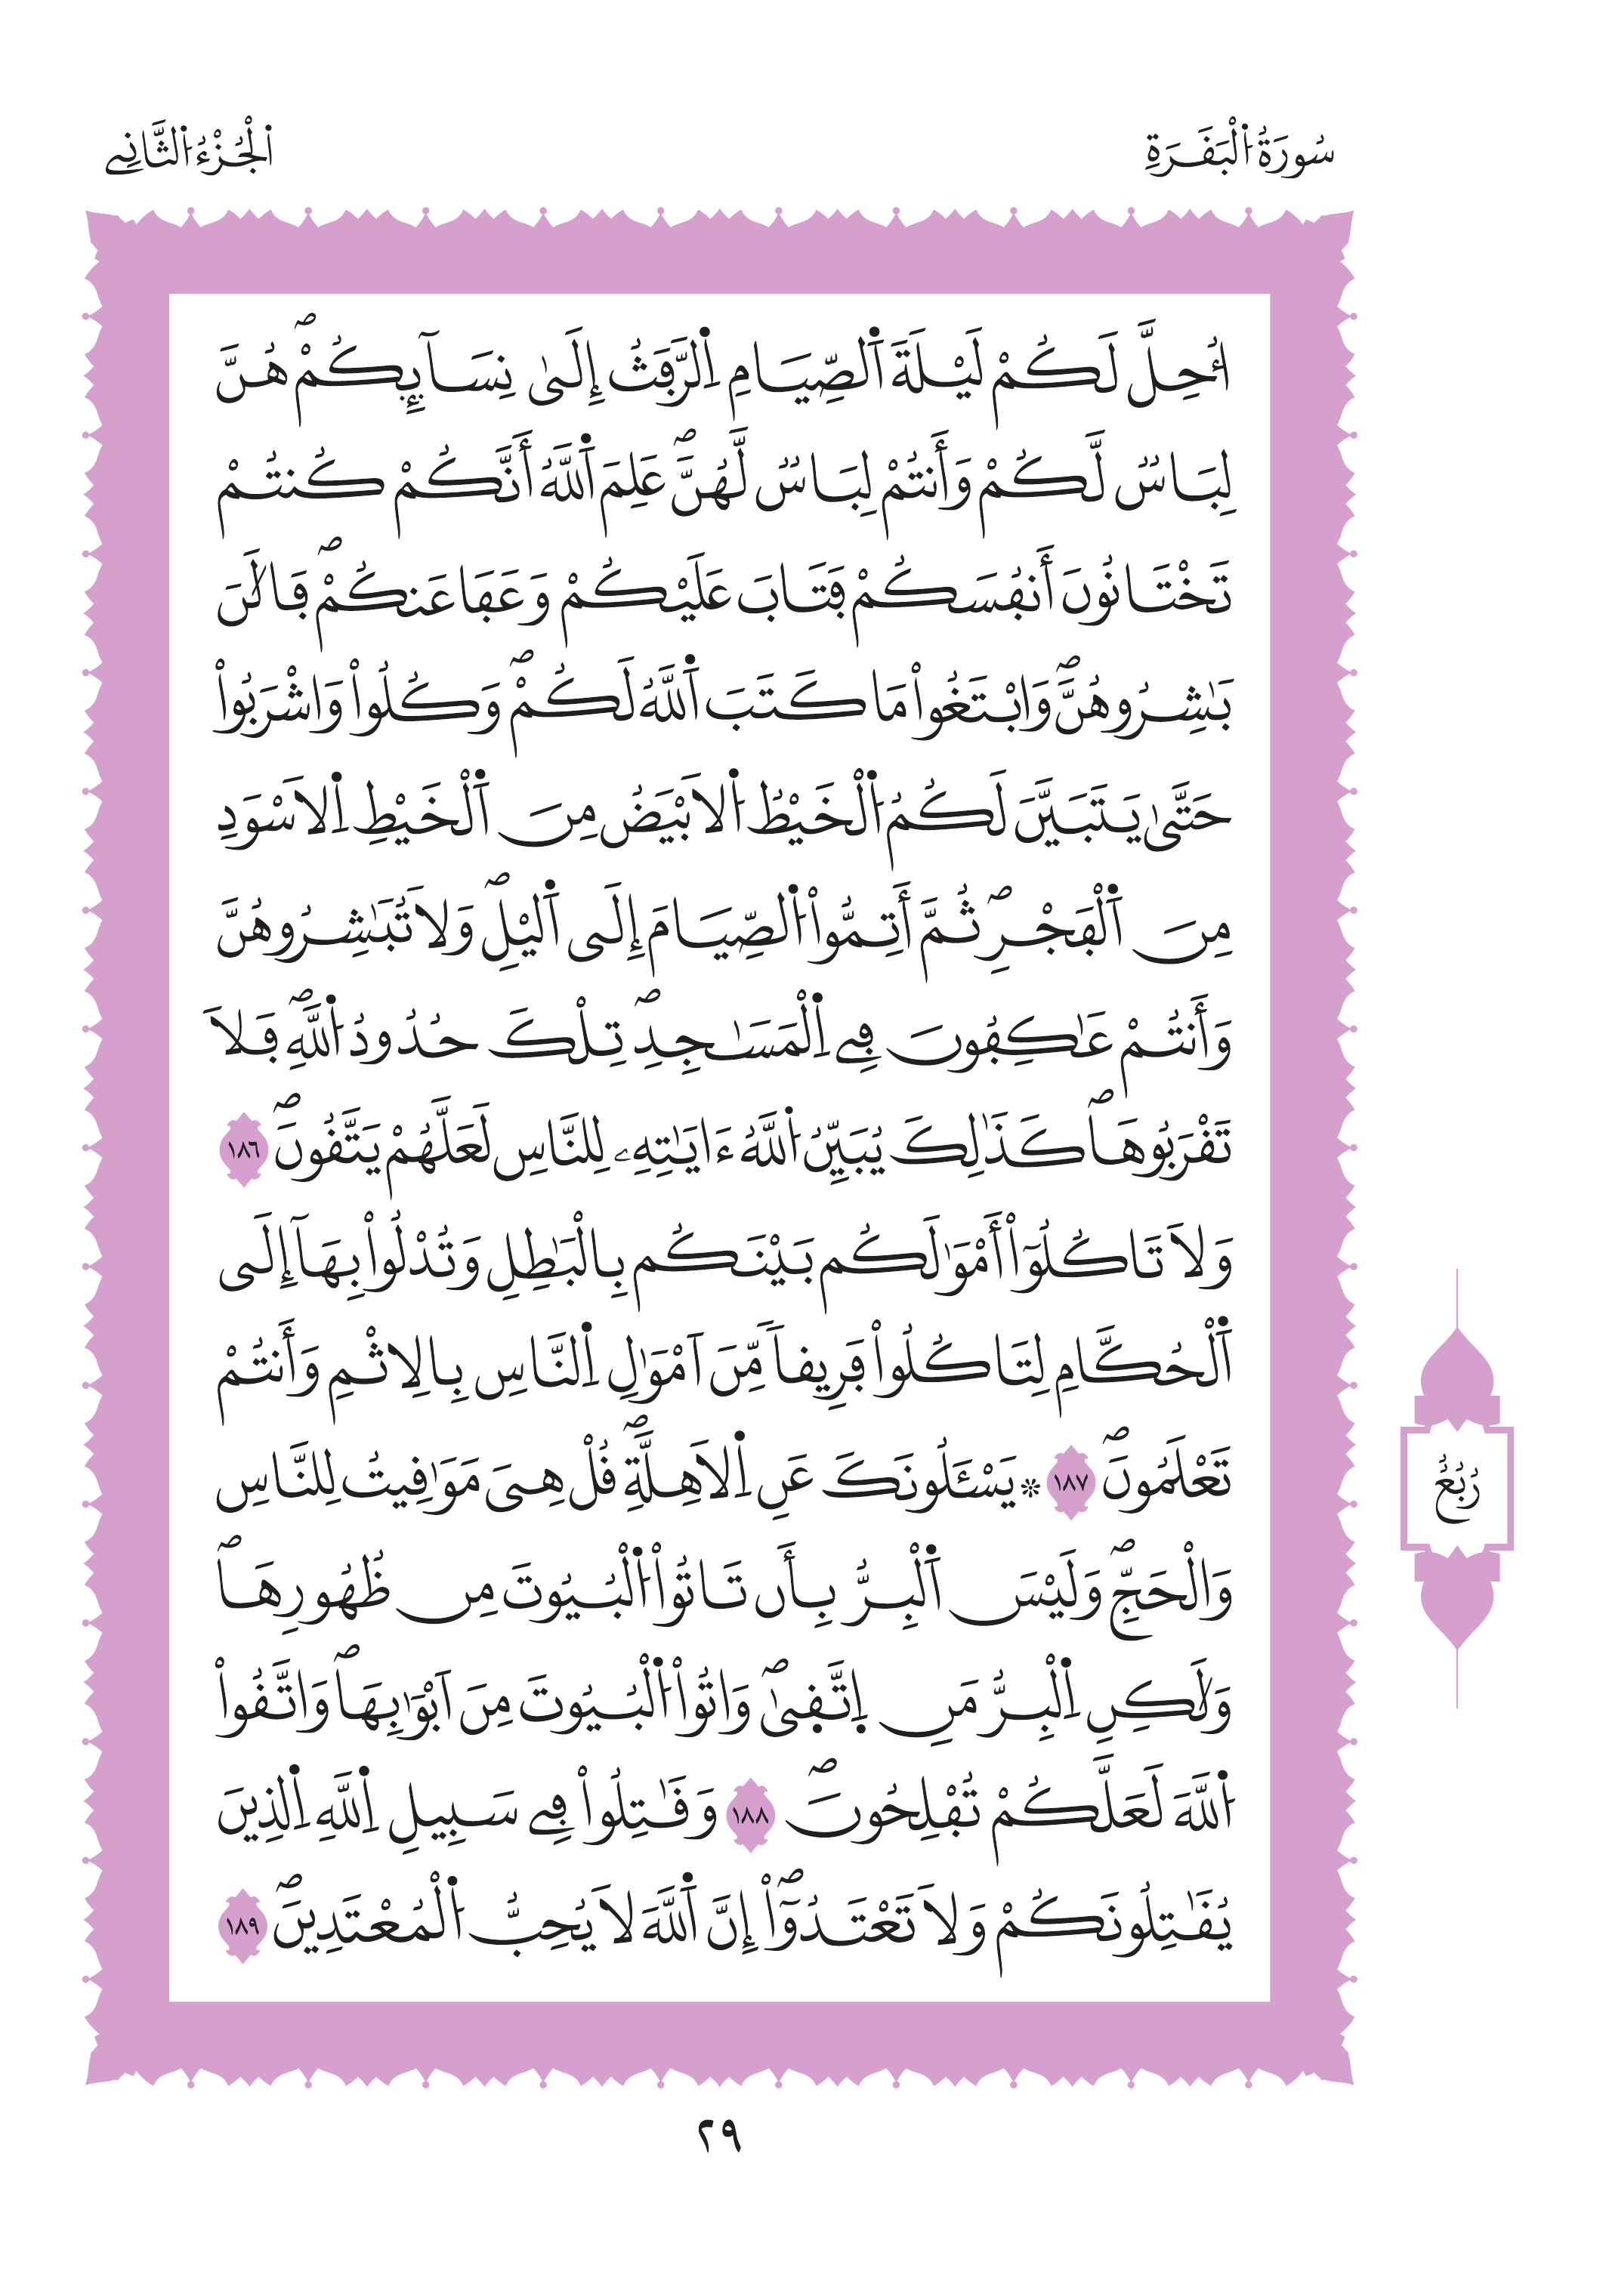 سُورَةُ اُ۬لْبَقَرَةِ
اَ۬لْجُزْءُ اُ۬لثَّانِے
ا۟حِلَّ لَكُمْ لَيْلَةَ اَ۬لصِّيَامِ اِ۬لرَّفَثُ إِلَىٰ نِسَآئِكُمْۖ هُنَّ
لِبَاسٞ لَّكُمْ وَأَنتُمْ لِبَاسٞ لَّهُنَّۖ عَلِمَ اَ۬للَّهُ أَنَّكُمْ كُنتُمْ
تَخْتَانُونَ أَنفُسَكُمْ فَتَابَ عَلَيْكُمْ وَعَفَا عَنكُمْۖ فَالَٰنَ
بَٰشِرُوهُنَّۖ وَابْتَغُواْ مَا كَتَبَ اَ۬للَّهُ لَكُمْۖ وَكُلُواْ وَاشْرَبُواْ
حَتَّىٰ يَتَبَيَّنَ لَكُمُ اُ۬لْخَيْطُ اُ۬لَابْيَضُ مِنَ اَ۬لْخَيْطِ اِ۬لَاسْوَدِ
مِنَ اَ۬لْفَجْرِۖ ثُمَّ أَتِمُّواْ اُ۬لصِّيَامَ إِلَى اَ۬ليْلِۖ وَلَا تُبَٰشِرُوهُنَّ
وَأَنتُمْ عَٰكِفُونَ فِے اِ۬لْمَسَٰجِدِۖ تِلْكَ حُدُودُ اُ۬للَّهِۖ فَلَا
تَقْرَبُوهَاۖ كَذَٰلِكَ يُبَيِّنُ اُ۬للَّهُ ءَايَٰتِهِۦ لِلنَّاسِ لَعَلَّهُمْ يَتَّقُونَۖ ١٨٦
وَلَا تَاكُلُوٓاْ أَمْوَٰلَكُم بَيْنَكُم بِالْبَٰطِلِ وَتُدْلُواْ بِهَآ إِلَى
اَ۬لْحُكَّامِ لِتَاكُلُواْ فَرِيقاٗ مِّنَ اَمْوَٰلِ اِ۬لنَّاسِ بِالِاثْمِ وَأَنتُمْ
تَعْلَمُونَۖ ١٨٧ ۞ يَسْـَٔلُونَكَ عَنِ اِ۬لَاهِلَّةِۖ قُلْ هِىَ مَوَٰقِيتُ لِلنَّاسِ
وَالْحَجِّۖ وَلَيْسَ اَ۬لْبِرُّ بِأَن تَاتُواْ اُ۬لْبُيُوتَ مِن ظُهُورِهَاۖ
وَلَٰكِنِ اِ۬لْبِرُّ مَنِ اِ۪تَّق۪ىٰۖ وَاتُواْ اُ۬لْبُيُوتَ مِنَ اَبْوَٰبِهَاۖ وَاتَّقُواْ
اُ۬للَّهَ لَعَلَّكُمْ تُفْلِحُونَۖ ١٨٨ وَقَٰتِلُواْ فِے سَبِيلِ اِ۬للَّهِ اِ۬لذِينَ
يُقَٰتِلُونَكُمْ وَلَا تَعْتَدُوٓاْۖ إِنَّ اَ۬للَّهَ لَا يُحِبُّ اُ۬لْمُعْتَدِينَۖ ١٨٩
رُبُعُ
٢٩